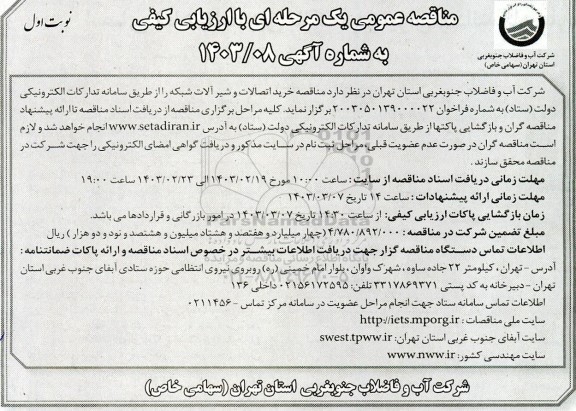 مناقصه عمومی یک مرحله ای با ارزیابی کیفی
به شماره آگهی ۱۴۰۳/۰۸
نوبت اول
شرکت آب و فاضلاب جنوبغربی
استان تهران (سهامی خاص)
شرکت آب و فاضلاب جنوبغربی استان تهران در نظر دارد مناقصه خرید اتصالات و شیر آلات شبکه را از طریق سامانه تدارکات الکترونیکی
دولت (ستاد) به شماره فراخوان ۲۰۰۳۰۵۰۱۳۹۰۰۰۰۲۲ برگزار نماید. کلیه مراحل برگزاری مناقصه از دریافت اسناد مناقصه تا ارائه پیشنهاد
مناقصه گران و بازگشایی پاکتها از طریق سامانه تدارکات الکترونیکی دولت (ستاد) به آدرس www.setadiran.ir انجام خواهد شد و لازم
است مناقصه گران در صورت عدم عضویت قبلی، مراحل ثبت نام در سایت مذکور و دریافت گواهی امضای الکترونیکی را جهت شرکت در
مناقصه محقق سازند.
مهلت زمانی دریافت اسناد مناقصه از سایت: ساعت ۱۰:۰۰ مورخ ۱۴۰۳/۰۲/۱۹ الی ۱۴۰۳/۰۲/۲۳ ساعت ۱۹:۰۰
مهلت زمانی ارائه پیشنهادات: ساعت ۱۴ تاریخ ۱۴۰۳/۰۳/۰۷
زمان بازگشایی پاکات ارزیابی کیفی: از ساعت ۱۴:۳۰ تاریخ ۱۴۰۳/۰۳/۰۷ در امور بازرگانی و قراردادها می باشد.
مبلغ تضمین شرکت در مناقصه: ۴/۷۸۰/۸۹۲/۰۰۰ (چهار میلیارد و هفتصد و هشتاد میلیون و هشتصد و نود و دو هزار) ریال
اطلاعات تماس دستگاه مناقصه گزار جهت دریافت اطلاعات بیشتر در خصوص اسناد مناقصه و ارائه پاکات ضمانتنامه:
آدرس - تهران، کیلومتر ۲۲ جاده ساوه، شهرک واوان، بلوار امام خمینی (ره) روبروی نیروی انتظامی حوزه ستادی آبفای جنوب غربی استان
تهران - دبیرخانه به کد پستی ۳۳۱۷۸۶۹۳۷۱ تلفن: ۰۲۱۵۶۱۷۲۵۹۵ داخلی ۱۳۶
اطلاعات تماس سامانه ستاد جهت انجام مراحل عضویت در سامانه مرکز تماس - ۰۲۱۱۴۵۶
سایت ملی مناقصات: http://iets.mporg.ir
سایت آبفای جنوب غربی استان تهران: swest.tpww.ir
سایت مهندسی کشور: www.nww.ir
شرکت آب و فاضلاب جنوبغربی استان تهران (سهامی خاص)